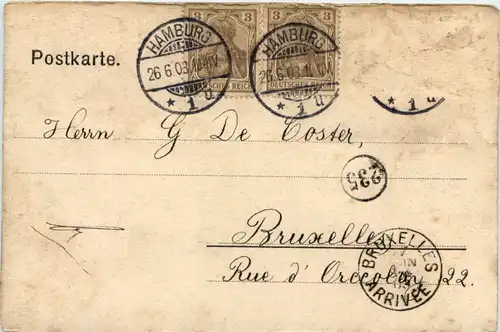 Postkarte.
3 3
DEUTSCHES REICH DEUTSCHES REICH
HAMBURG
26.6.03
* 1 u.
HAMBURG
26.6.03
* 1 u.
* 1 u.
Herrn G De Coster,
235
Bruxelles
Rue d'Orccolan 22.
BRUXELLES
ARRIVÉE